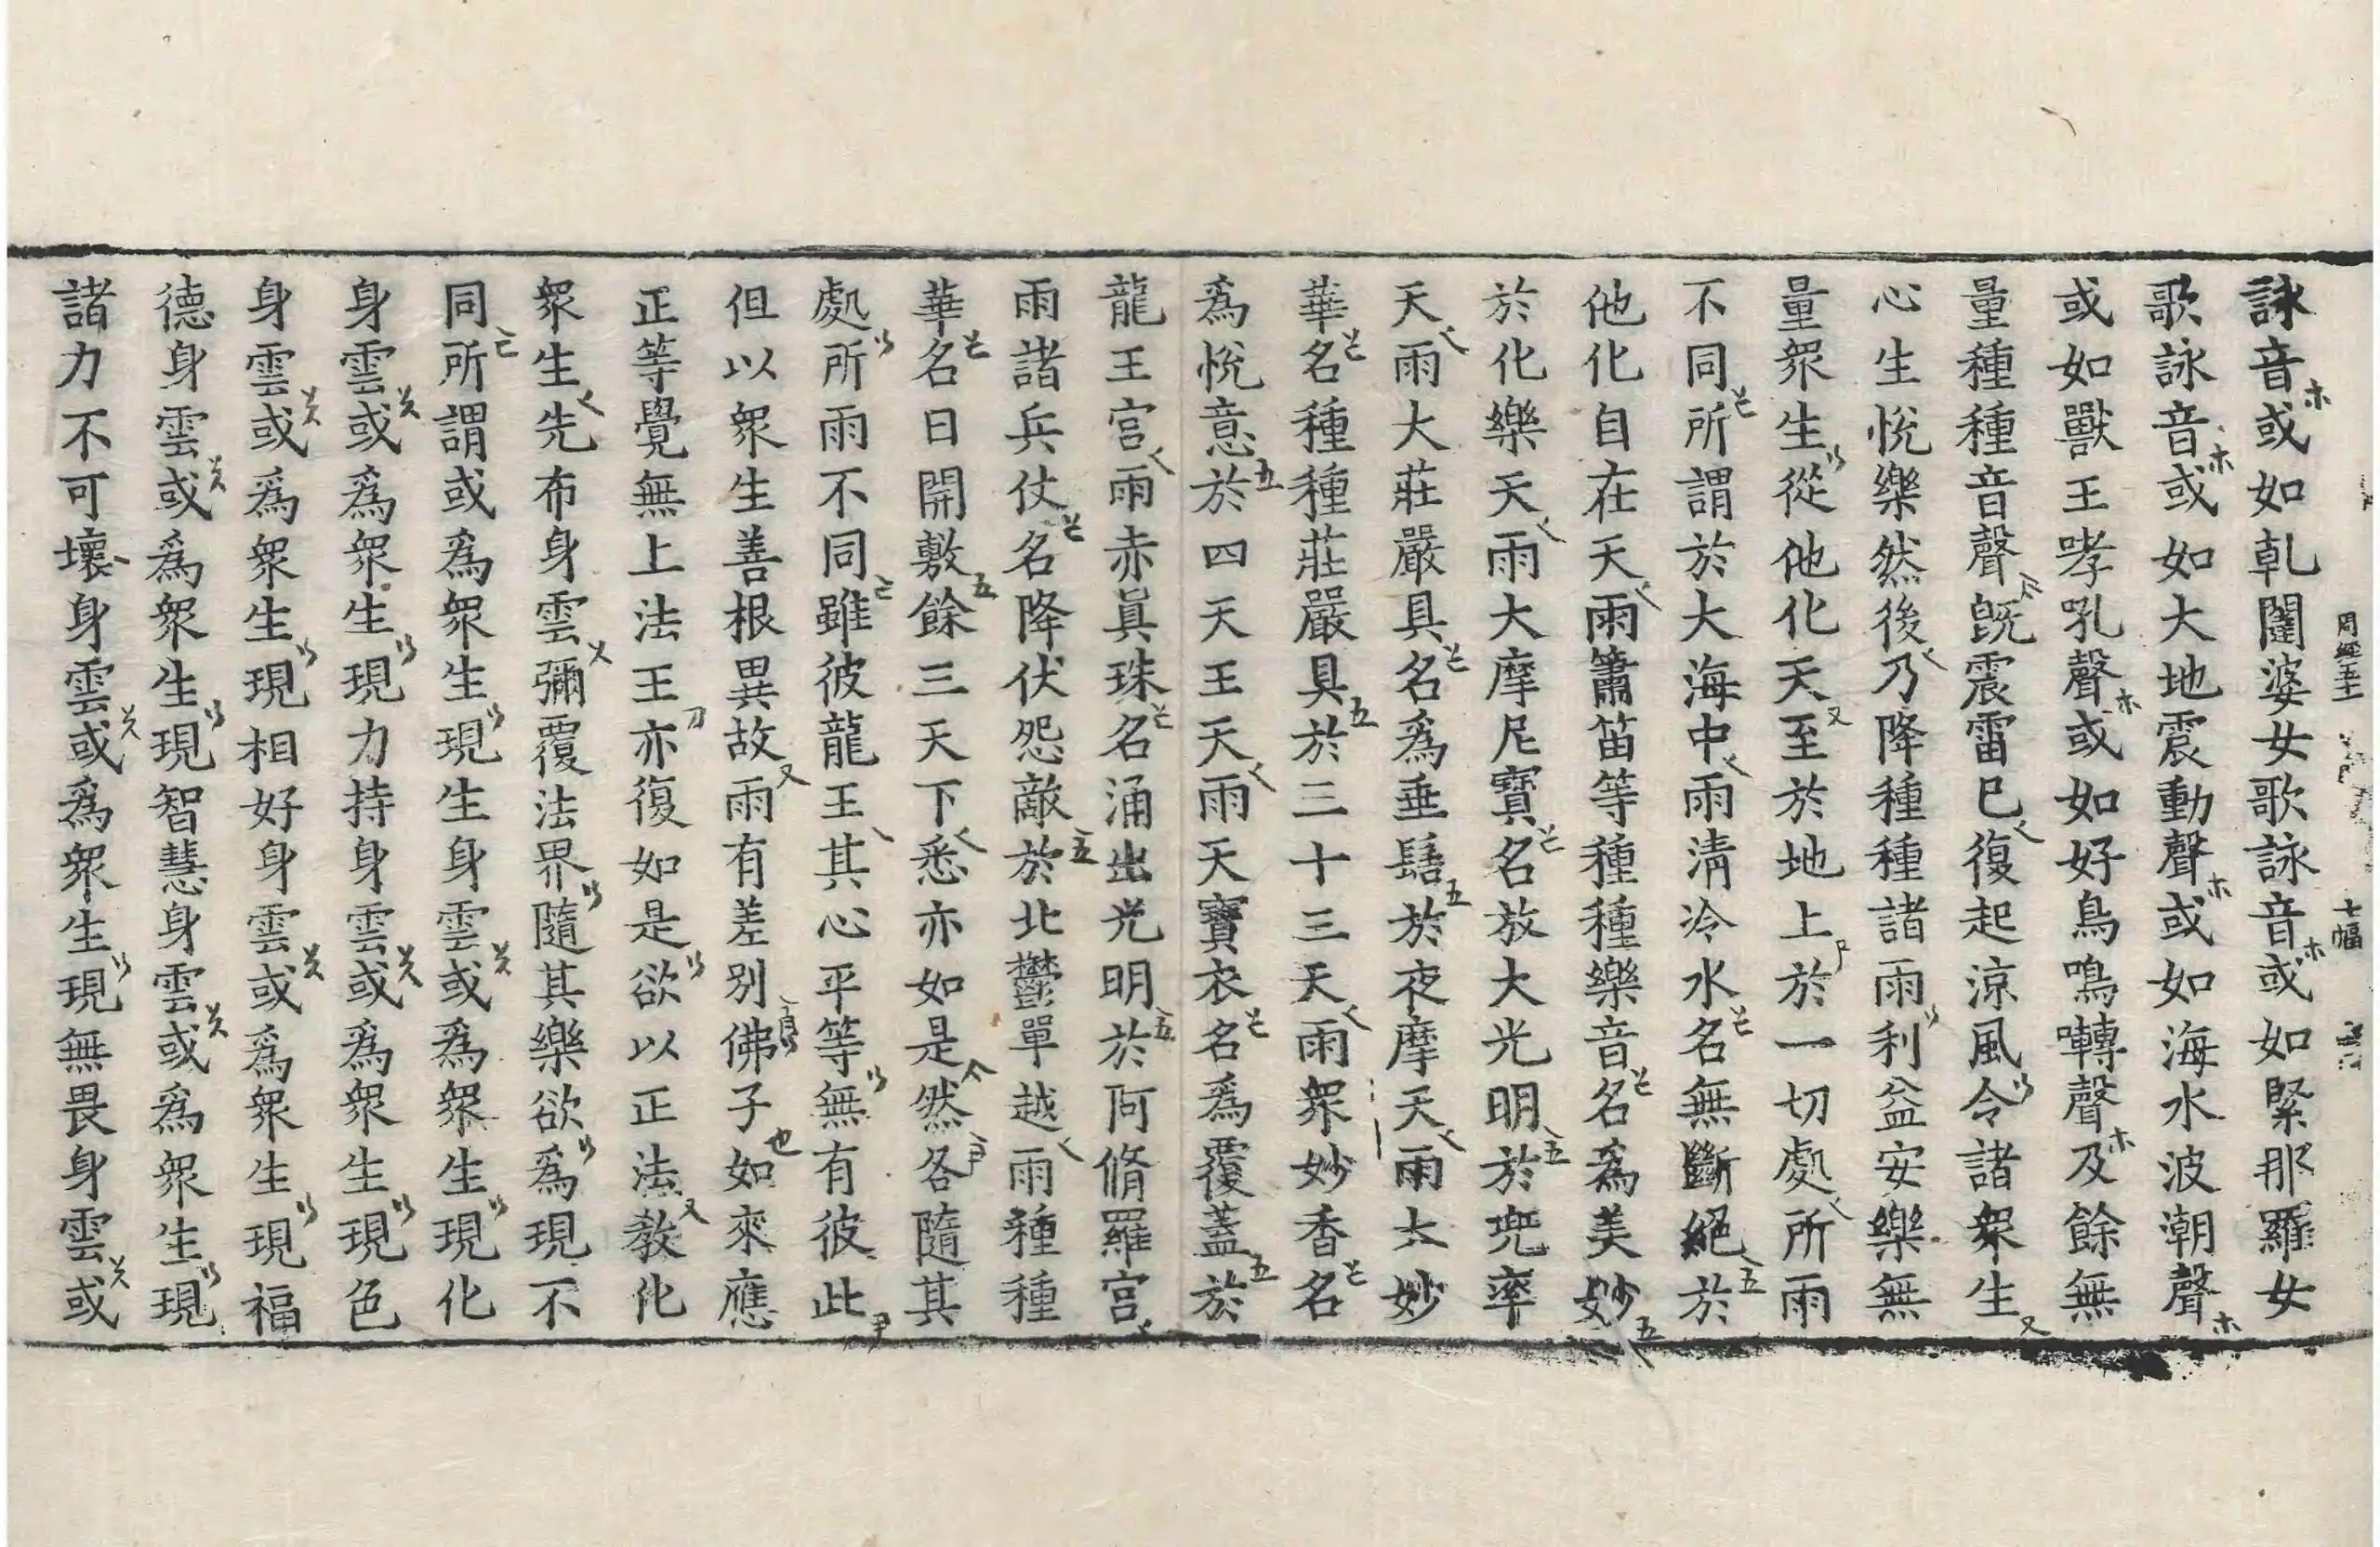 詠音或如乹闥婆女歌詠音或如緊那羅女
歌詠音或如大地震動聲或如海水波潮聲
或如獸王哮吼聲或如好鳥鳴囀聲及餘無
量種種音聲旣震雷已復起涼風令諸衆生
心生悅樂然後乃降種種諸雨利益安樂無
量衆生從他化天至於地上於一切處所雨
不同所謂於大海中雨淸冷水名無斷絕於
他化自在天雨簫笛等種種樂音名爲美妙
於化樂天雨大摩尼寶名放大光明於兜率
天雨大莊嚴具名爲垂髻於夜摩天雨大妙
華名種種莊嚴具於三十三天雨衆妙香名
爲悅意於四天王天雨天寶衣名爲覆蓋於
龍王宮雨赤眞珠名涌出光明於阿脩羅宮
雨諸兵仗名降伏怨敵於北鬱單越雨種種
華名曰開敷餘三天下悉亦如是然各隨其
處所雨不同雖彼龍王其心平等無有彼此
但以衆生善根異故雨有差別佛子如來應
正等覺無上法王亦復如是欲以正法敎化
衆生先布身雲彌覆法界隨其樂欲爲現不
同所謂或爲衆生現生身雲或爲衆生現化
身雲或爲衆生現力持身雲或爲衆生現色
身雲或爲衆生現相好身雲或爲衆生現福
德身雲或爲衆生現智慧身雲或爲衆生現
諸力不可壞身雲或爲衆生現無畏身雲或